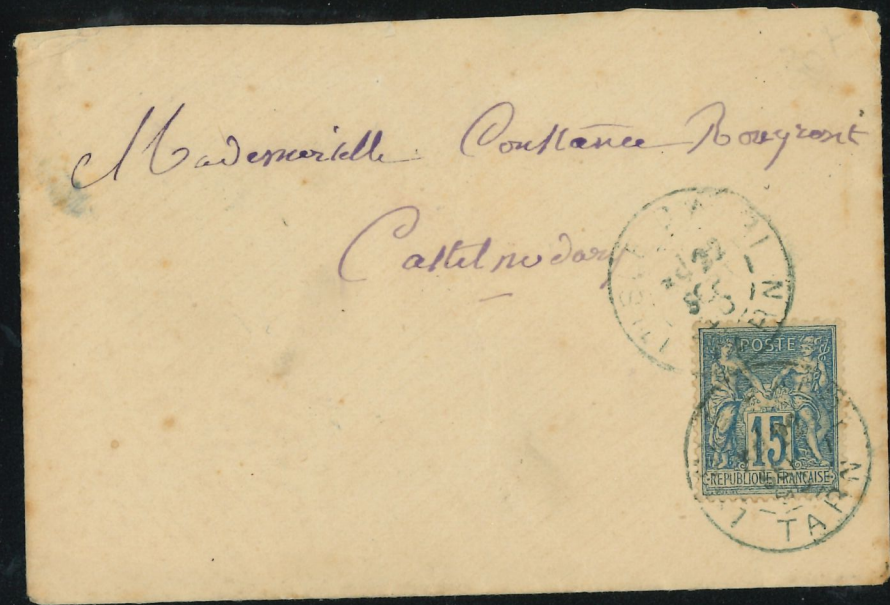 Mademoiselle Constance Rouyrosit
Castelnodary
POSTE
15
REPUBLIQUE FRANÇAISE
TARN